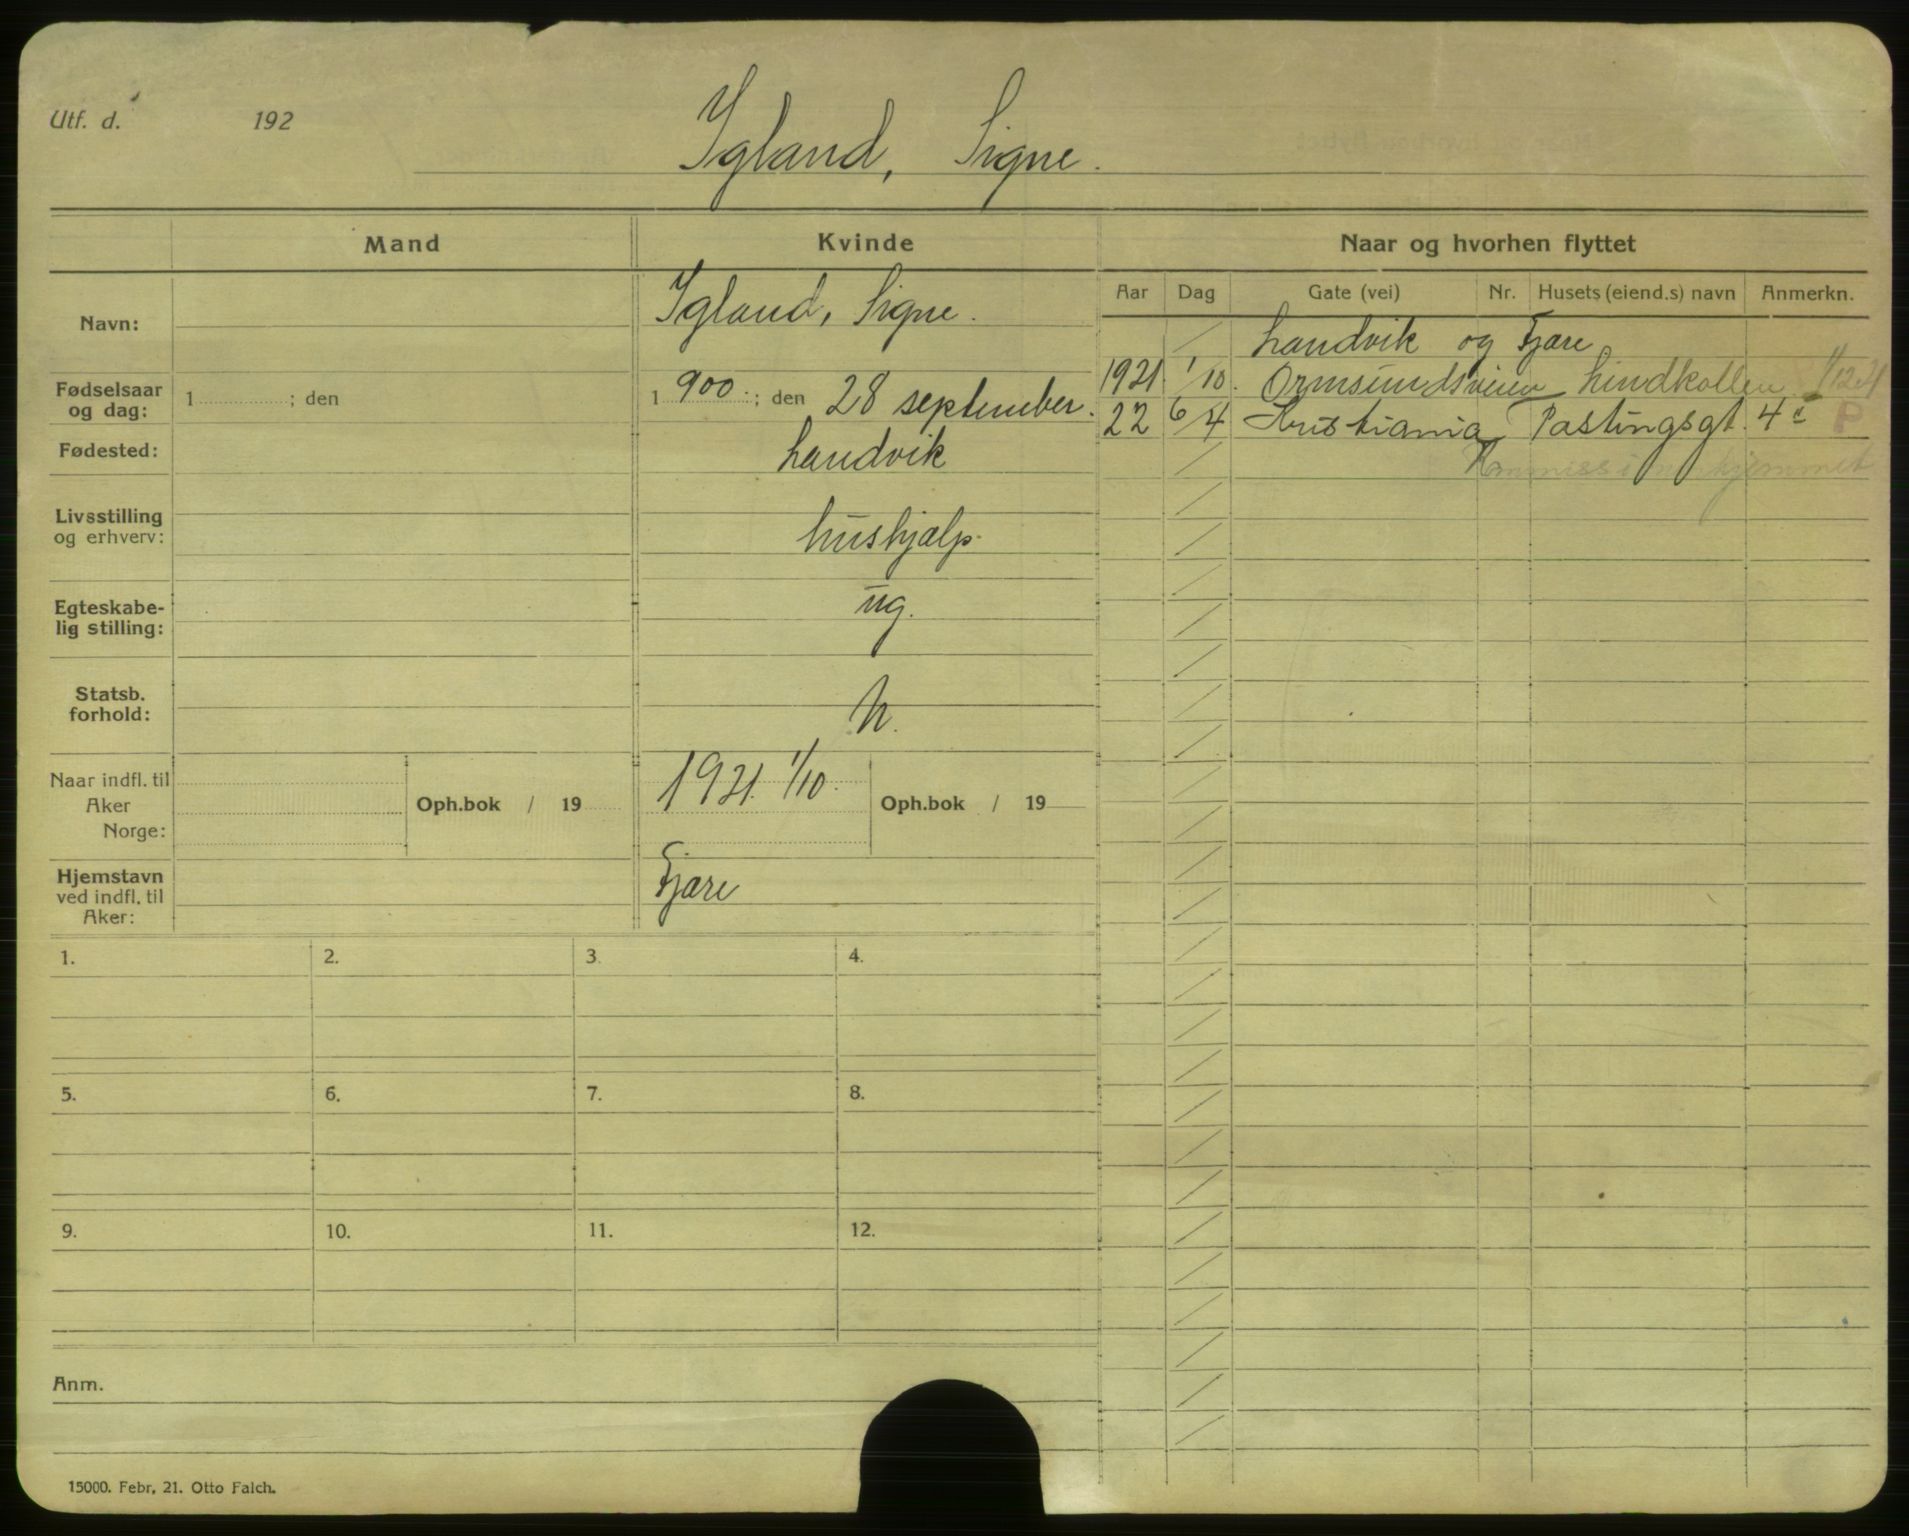 Utf. d. 192
Igland, Signe.
Mand
Kvinde
Naar og hvorhen flyttet
Aar Dag Gate (vei) Nr. Husets (eiend.s) navn Anmerkn.
Navn: Igland, Signe.
Fødselsaar og dag: 1 ; den 1900 ; den 28 september.
Fødested: Landvik
Livsstilling og erhverv: hushjælp.
Egteskabelig stilling: ug.
Statsb. forhold: n.
Naar indfl. til Aker Norge: Oph.bok / 19 1921 1/10. Oph.bok / 19
Hjemstavn ved indfl. til Aker: Fjære
/ Landvik og Fjære
1921. 1/10. Ormsundsveien Lindkollen 1/12 21
22 6/4 Kristiania 4 P
1. 2. 3. 4.
5. 6. 7. 8.
9. 10. 11. 12.
Anm.
15000. Febr, 21. Otto Falch.